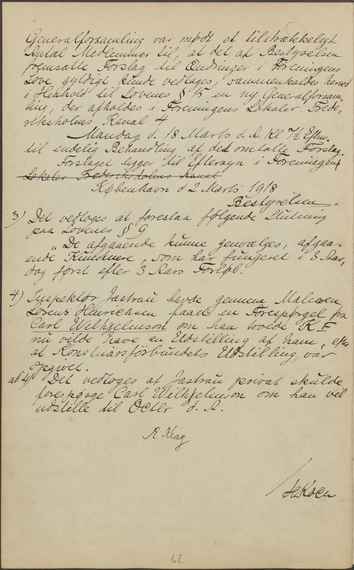 Generalforsamling var mødt et tilstrækkeligt
Antal Medlemmer til, at det af Bestyrelsen
fremsatte Forslag til Ændringer i Foreningens
Love gyldigt kunde vedtages, sammenkaldes herved
i Henhold til Lovenes § 15 en ny Generalforsam-
ling, der afholdes i Foreningens Lokaler Frede-
riksholms Kanal 4
Mandag d. 18 Marts d. A. Kl. 7½ Eftm.
til endelig Behandling af det omtalte Forslag.
Forslaget ligger til Eftersyn i Foreningens
Lokaler Frederiksholms Kanal
København d 2 Marts 1918
Bestyrelsen.
3) Det vedtoges at foreslaa følgende Slutning
paa Lovenes § 9
"De afgaaende kunne genvælges, afgaa-
ende Kunstnere, som har fungeret i 3 Aar,
dog først efter 3 Aars Forløb.
4) Inspektør Jastrau havde gennem Maleren
faaet en Forespørgsel fra
Carl Wilhjelmson om han vilde K.F.
nu vilde have en Udstilling af ham, efter
at Konstnärsförbundets Udstilling var
opgivet.
ad 4) Det vedtoges at Jastrau privat skulde
forespørge Carl Wilhjelmson om han vil
udstille til Octbr d. A.
R Mag
62